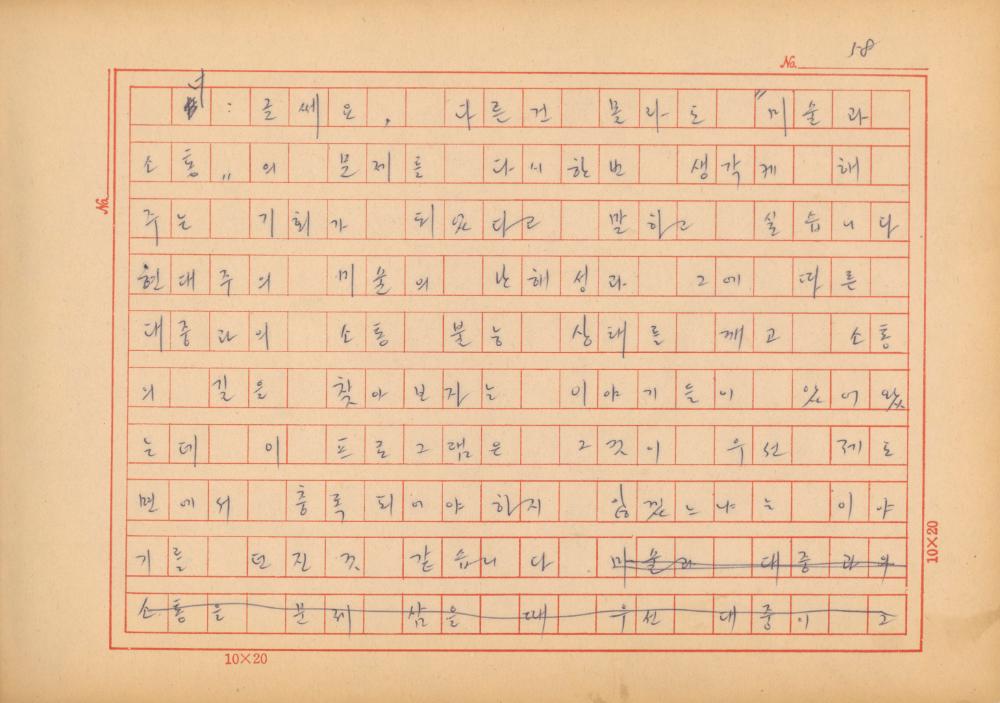 No. 18
No.
너 : 글쎄요, 다른건 몰라도 "미술과
소통"의 문제를 다시한번 생각케 해
주는 기회가 되었다고 말하고 싶습니다
현대주의 미술의 난해성과 그에 따른
대중과의 소통 불능 상태를 깨고 소통
의 길을 찾아보자는 이야기들이 있어왔
는데 이 프로그램은 그것이 우선 제도
면에서 충록되어야 하지 않겠느냐는 이야
기를 던진것 같습니다. 미술과 대중과의
소통을 문제 삼을 때 우선 대중이 그
10×20
10×20